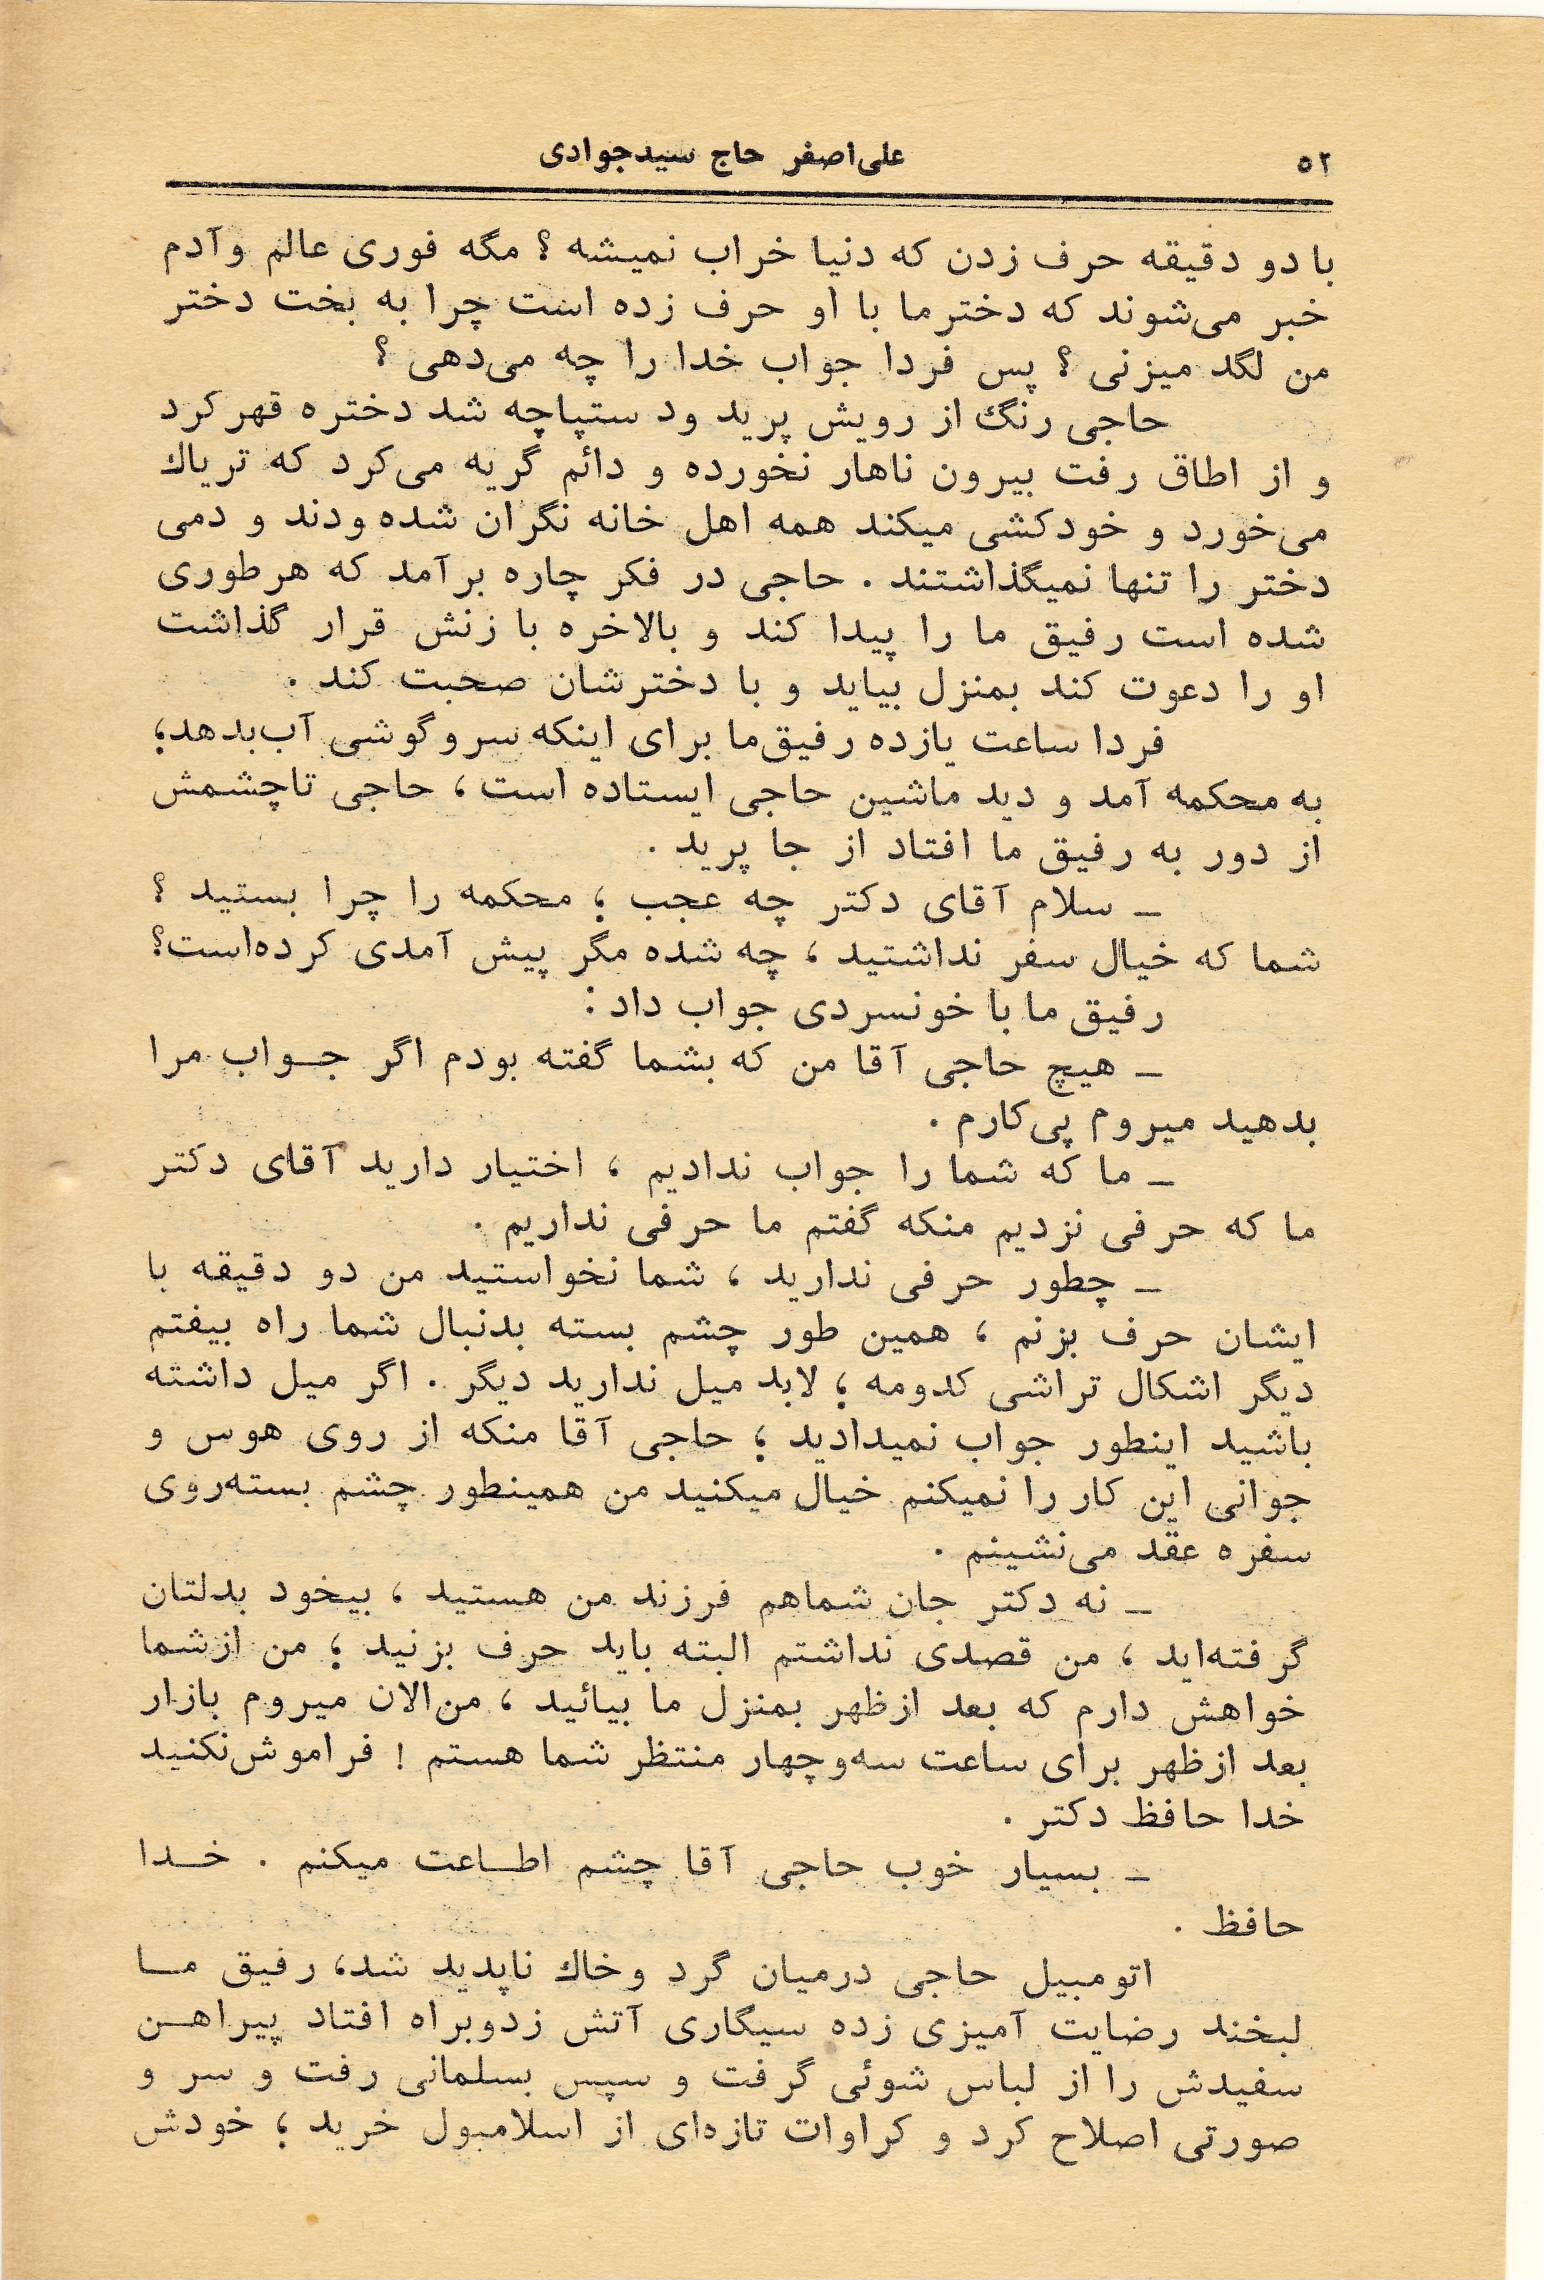 ۵۲
علی‌اصغر حاج سیدجوادی
با دو دقیقه حرف زدن که دنیا خراب نمیشه ؟ مگه فوری عالم وآدم
خبر می‌شوند که دخترما با او حرف زده است چرا به بخت دختر
من لگد میزنی ؟ پس فردا جواب خدا را چه می‌دهی ؟
حاجی رنگ از رویش پرید ود ستپاچه شد دختره قهر کرد
و از اطاق رفت بیرون ناهار نخورده و دائم گریه می‌کرد که تریاك
می‌خورد و خودکشی میکند همه اهل خانه نگران شده ودند و دمی
دختر را تنها نمیگذاشتند . حاجی در فکر چاره برآمد که هرطوری
شده است رفیق ما را پیدا کند و بالاخره با زنش قرار گذاشت
او را دعوت کند بمنزل بیاید و با دخترشان صحبت کند .
فردا ساعت یازده رفیق‌ما برای اینکه سروگوشی آب‌بدهد؛
به محکمه آمد و دید ماشین حاجی ایستاده است ، حاجی تاچشمش
از دور به رفیق ما افتاد از جا پرید .
ـ سلام آقای دکتر چه عجب ؛ محکمه را چرا بستید ؟
شما که خیال سفر نداشتید ، چه شده مگر پیش آمدی کرده‌است؟
رفیق ما با خونسردی جواب داد :
ـ هیچ حاجی آقا من که بشما گفته بودم اگر جـواب مرا
بدهید میروم پی‌کارم .
ـ ما که شما را جواب ندادیم ، اختیار دارید آقای دکتر
ما که حرفی نزدیم منکه گفتم ما حرفی نداریم .
ـ چطور حرفی ندارید ، شما نخواستید من دو دقیقه با
ایشان حرف بزنم ، همین طور چشم بسته بدنبال شما راه بیفتم
دیگر اشکال تراشی کدومه ؛ لابد میل ندارید دیگر . اگر میل داشته
باشید اینطور جواب نمیدادید ؛ حاجی آقا منکه از روی هوس و
جوانی این کار را نمیکنم خیال میکنید من همینطور چشم بسته‌روی
سفره عقد می‌نشینم .
ـ نه دکتر جان شماهم فرزند من هستید ، بیخود بدلتان
گرفته‌اید ، من قصدی نداشتم البته باید حرف بزنید ؛ من ازشما
خواهش دارم که بعد ازظهر بمنزل ما بیائید ، من‌الان میروم بازار
بعد ازظهر برای ساعت سه‌وچهار منتظر شما هستم ! فراموش‌نکنید
خدا حافظ دکتر .
ـ بسیار خوب حاجی آقا چشم اطـاعت میکنم . خـدا
حافظ .
اتومبیل حاجی درمیان گرد وخاك ناپدید شد، رفیق مـا
لبخند رضایت آمیزی زده سیگاری آتش زدوبراه افتاد پیراهـن
سفیدش را از لباس شوئی گرفت و سپس بسلمانی رفت و سر و
صورتی اصلاح کرد و کراوات تازه‌ای از اسلامبول خرید ؛ خودش